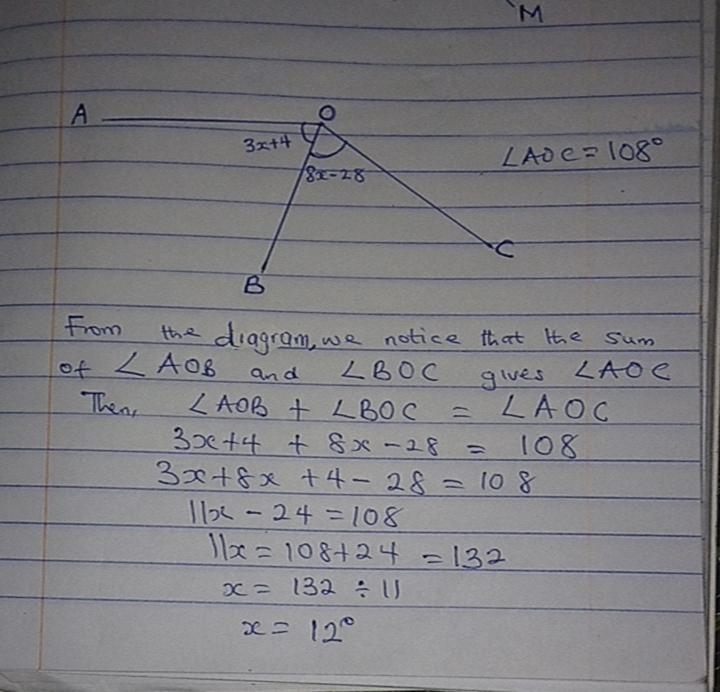 M
A O
3x+4
∠AOC = 108°
8x-28
C
B
From the diagram, we notice that the sum
of ∠AOB and ∠BOC gives ∠AOC
Then, ∠AOB + ∠BOC = ∠AOC
3x+4 + 8x-28 = 108
3x+8x +4-28 = 108
11x - 24 = 108
11x = 108+24 = 132
x = 132 ÷ 11
x = 12°